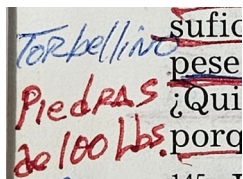 Torbellino
Piedras
de 100 Lbs.
sufic
pese
¿Qui
porq